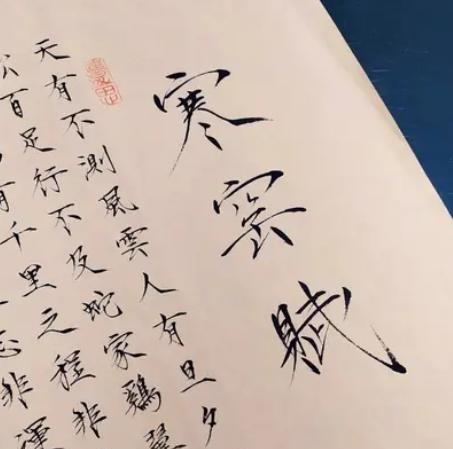 寒窑賦
天有不測風雲人有旦夕
蚣百足行不及蛇家鷄翼
有千里之程非
志非運